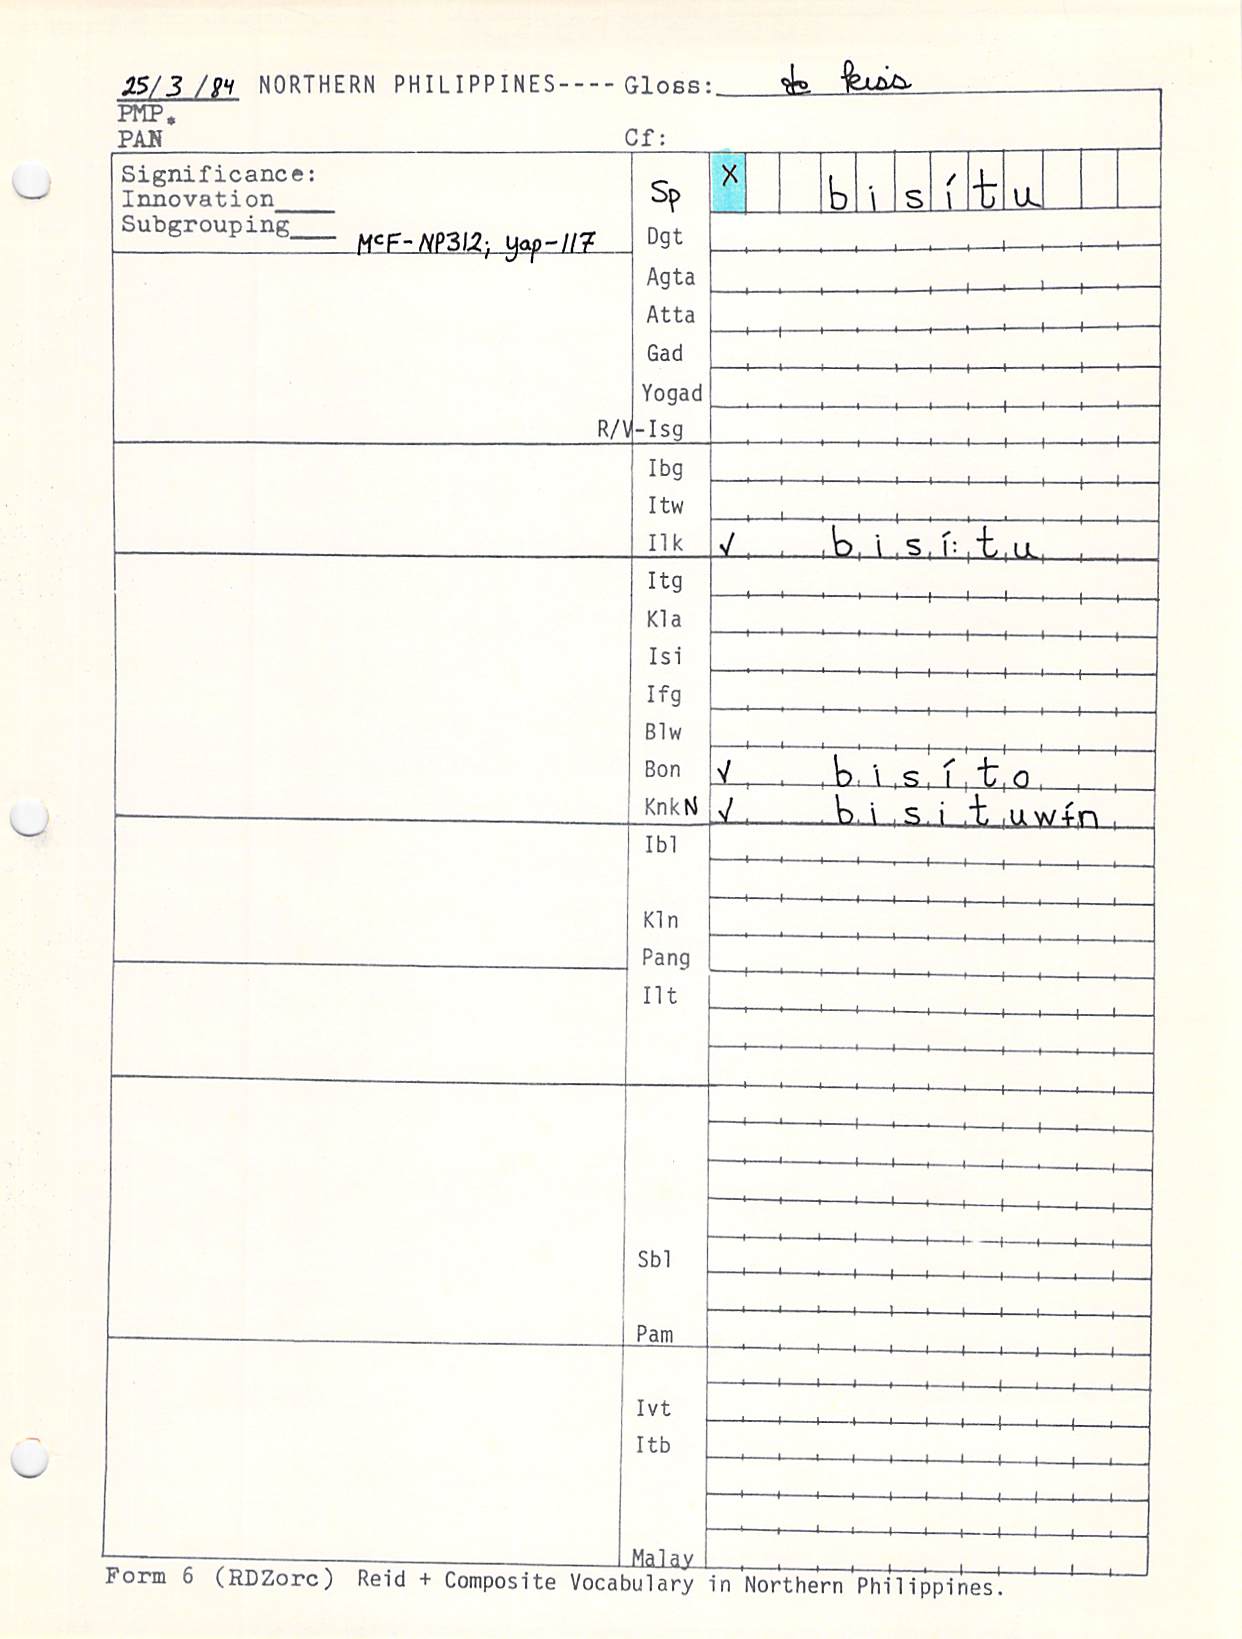 25/3/84 NORTHERN PHILIPPINES---- Gloss: to kiss
PMP*
PAN Cf:
Significance:
Innovation____
Subgrouping___ McF-NP312; yap-117
Sp X b i s í t u
Dgt
Agta
Atta
Gad
Yogad
R/V-Isg
Ibg
Itw
Ilk ✓ b i s í: t u
Itg
Kla
Isi
Ifg
Blw
Bon ✓ b i s í t o
Knk N ✓ b i s i t u w ɨ́ n
Ibl
Kln
Pang
Ilt
Sbl
Pam
Ivt
Itb
Malay
Form 6 (RDZorc) Reid + Composite Vocabulary in Northern Philippines.